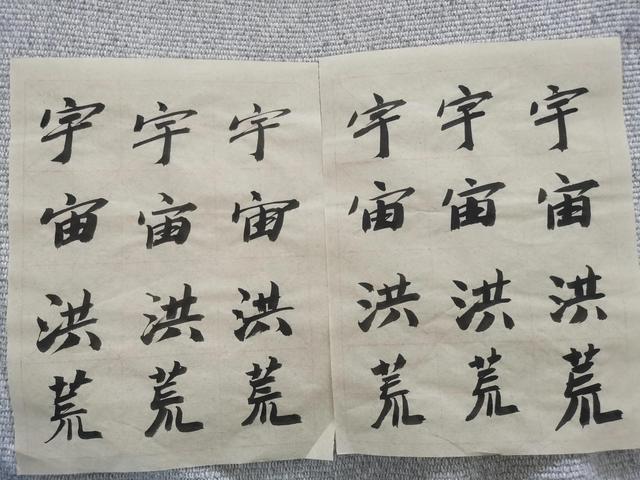 宇宇宇宇宇宇
宙宙宙宙宙宙
洪洪洪洪洪洪
荒荒荒荒荒荒